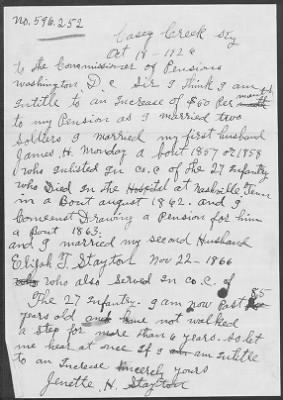 no. 596.252
Casey Creek Ky
Oct 18-1926
to the Commissioner of Pensions
Washington, D.C Sir I think I am
intitle to an Increase of $60 Per month
to my Pension as I married two
Soldiers I married my first husband
James H. Monday a bout 1857 or 1858
who inlisted in Co. C of the 27 Infantry
who Died in the Hospital at Nashville Tenn
in a Bout august 1862. and I
Comenst Drawing a Pension for him
a Bout 1863.
and I married my second Husband
Elijah T. Stayton Nov 22-1866
who also served in Co. C. of
The 27 Infantry. I am now Past 85
years old and have not walked
a step for more than 6 years. so let
me hear at once If I am intitle
to an Increase Sincerely yours
Jenette H. Stayton